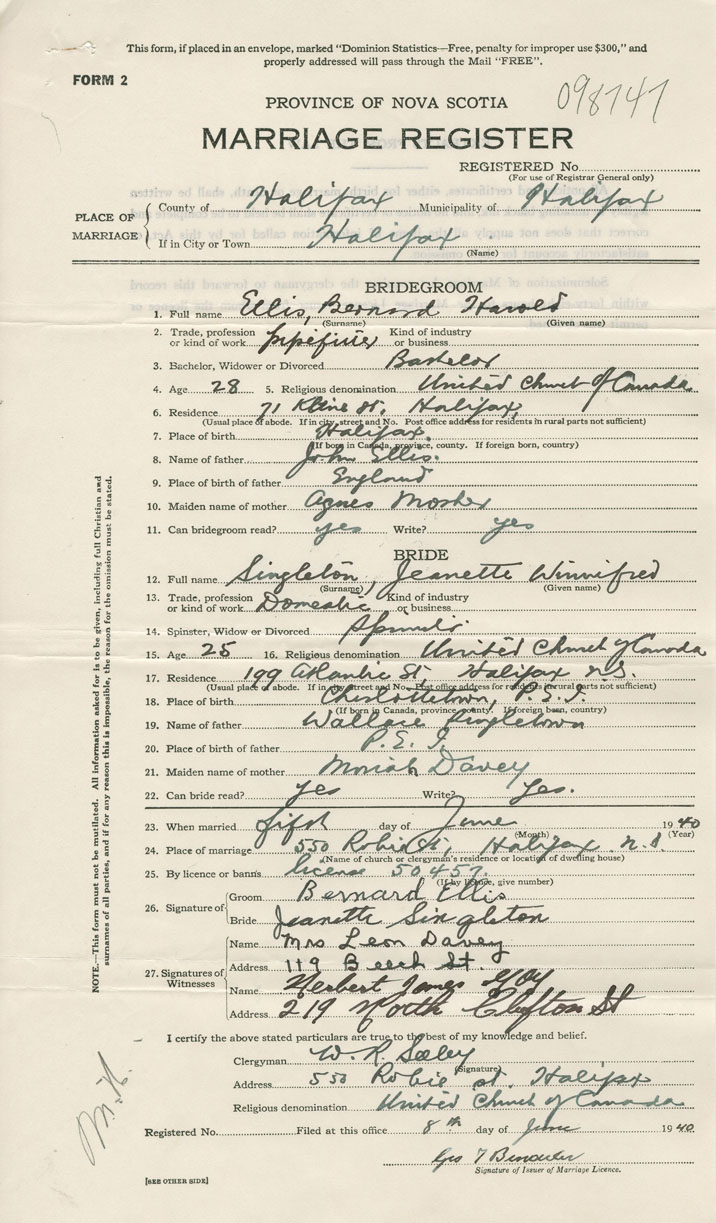 This form, if placed in an envelope, marked "Dominion Statistics—Free, penalty for improper use $300," and
properly addressed will pass through the Mail "FREE".
FORM 2
098747
PROVINCE OF NOVA SCOTIA
MARRIAGE REGISTER
REGISTERED No.
(For use of Registrar General only)
PLACE OF MARRIAGE
County of Halifax Municipality of Halifax
If in City or Town Halifax
(Name)
BRIDEGROOM
1. Full name Ellis, Bernard Harold
(Surname) (Given name)
2. Trade, profession or kind of work pipefitter Kind of industry or business
3. Bachelor, Widower or Divorced Bachelor
4. Age 28 5. Religious denomination United Church of Canada
6. Residence 71 Kline St. Halifax
(Usual place of abode. If in city, street and No. Post office address for residents in rural parts not sufficient)
7. Place of birth Halifax
(If born in Canada, province, county. If foreign born, country)
8. Name of father John Ellis.
9. Place of birth of father England
10. Maiden name of mother Agnes Mosher
11. Can bridegroom read? yes Write? yes
BRIDE
12. Full name Singleton, Jeanette Winnifred
(Surname) (Given name)
13. Trade, profession or kind of work Domestic Kind of industry or business
14. Spinster, Widow or Divorced
15. Age 25 16. Religious denomination United Church of Canada
17. Residence 199 Atlantic St, Halifax N.S.
(Usual place of abode. If in city, street and No. Post office address for residents in rural parts not sufficient)
18. Place of birth Charlottetown, P.E.I.
(If born in Canada, province, county. If foreign born, country)
19. Name of father Wallace Singletown
20. Place of birth of father P.E.I.
21. Maiden name of mother Moriah Davey
22. Can bride read? Yes Write? Yes.
23. When married fifth day of June 1940
(Month) (Year)
24. Place of marriage 550 Robie St, Halifax N.S.
(Name of church or clergyman's residence or location of dwelling house)
25. By licence or banns license 50457.
(If by licence, give number)
26. Signature of
Groom Bernard Ellis
Bride Jeanette Singleton
27. Signatures of Witnesses
Name Mrs Leon Davey
Address 119 Beech St.
Name Herbert James
Address 219 North Clifton St
I certify the above stated particulars are true to the best of my knowledge and belief.
Clergyman W. R. Seeley
(Signature)
Address 550 Robie St. Halifax
Religious denomination United Church of Canada
Registered No. Filed at this office 8th day of June 1940.
Geo T
Signature of Issuer of Marriage Licence.
[SEE OTHER SIDE]
NOTE.—This form must not be mutilated. All information asked for is to be given, including full Christian and
surnames of all parties, and if for any reason this is impossible, the reason for the omission must be stated.